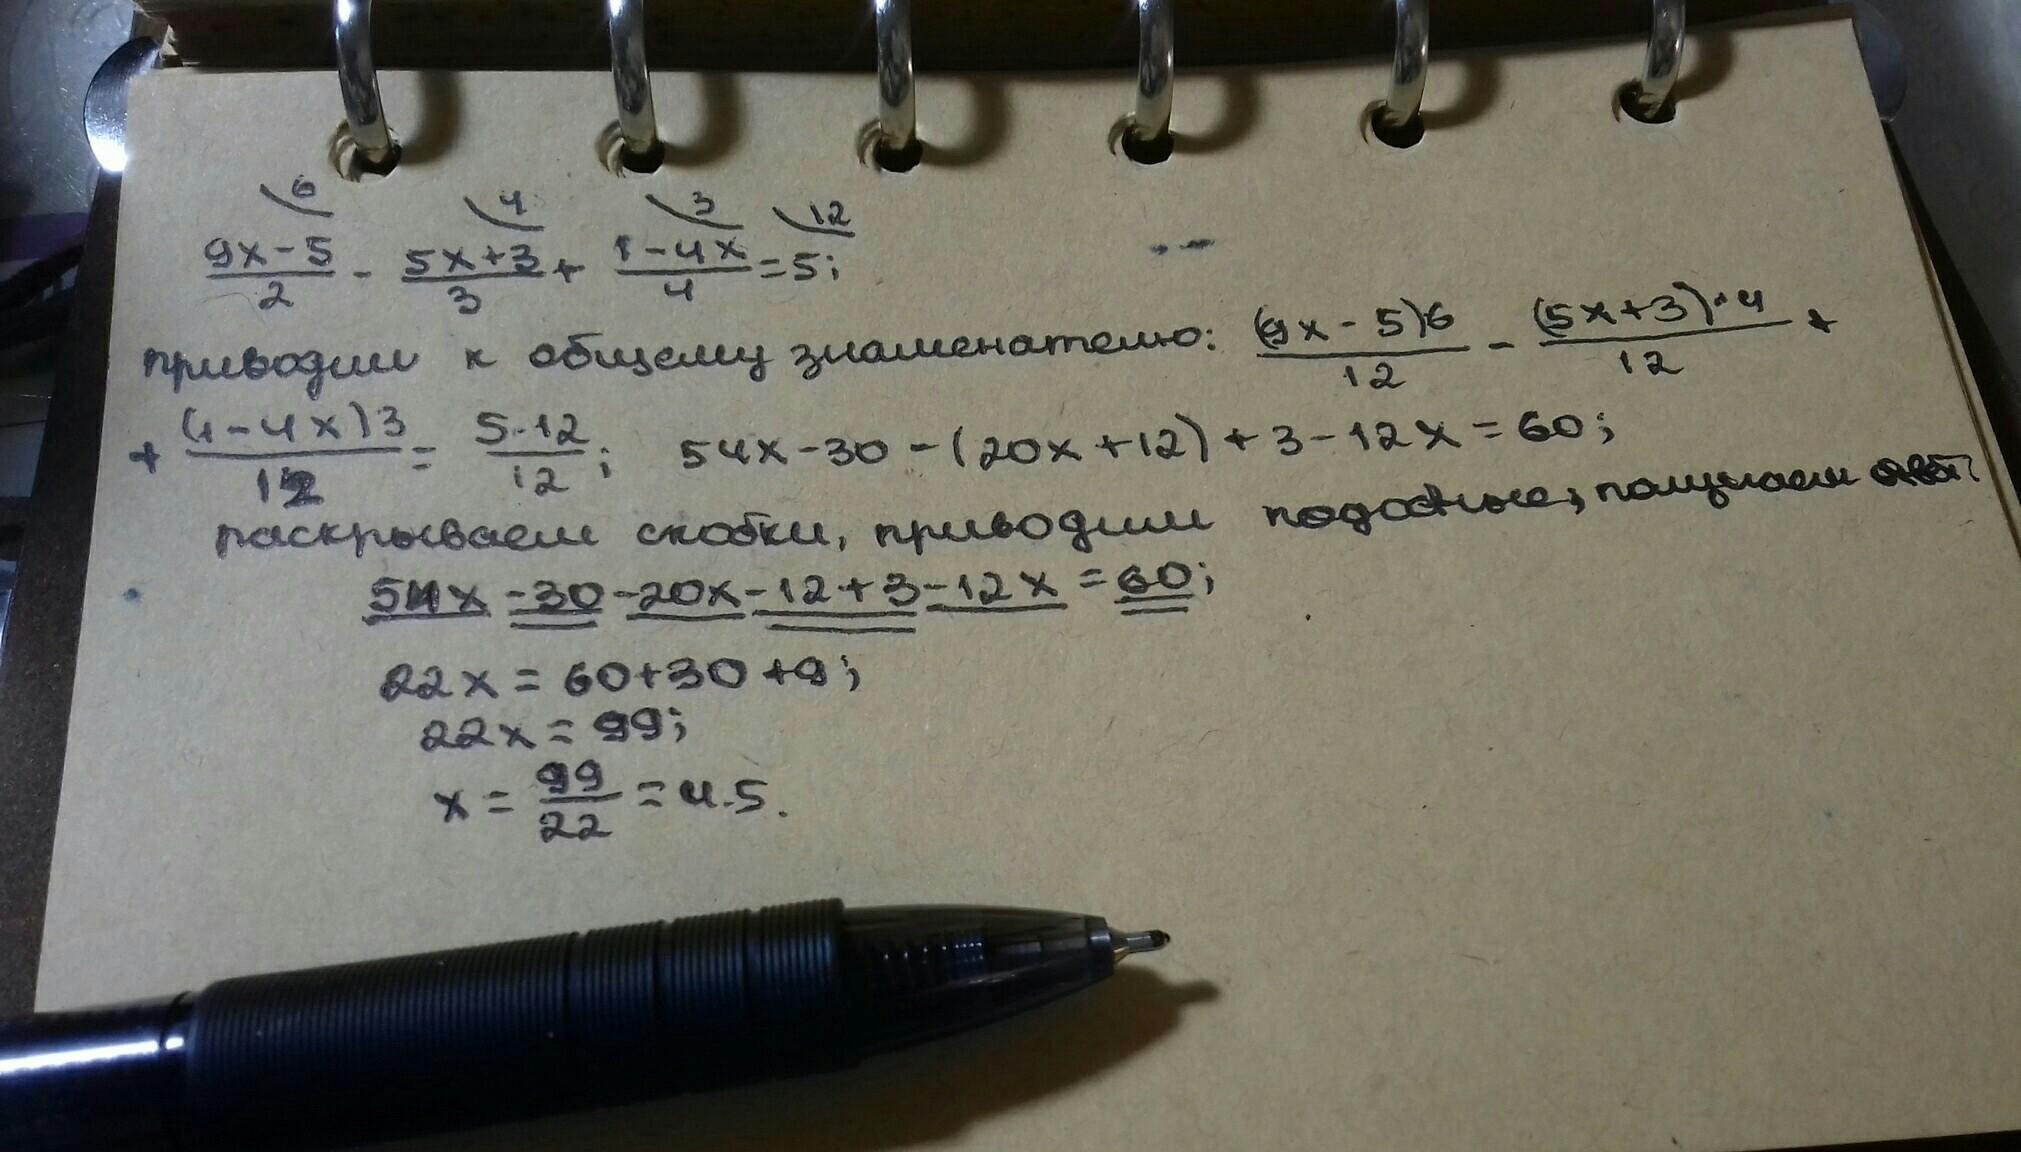 6 4 3 12
9x-5/2 - 5x+3/3 + 1-4x/4 = 5;
приводим к общему знаменателю: (9x-5)6/12 - (5x+3)·4/12 +
+ (1-4x)3/12 = 5·12/12; 54x-30-(20x+12)+3-12x=60;
раскрываем скобки, приводим подобные, получаем
54x-30-20x-12+3-12x=60;
22x=60+30+9;
22x=99;
x=99/22=4.5.